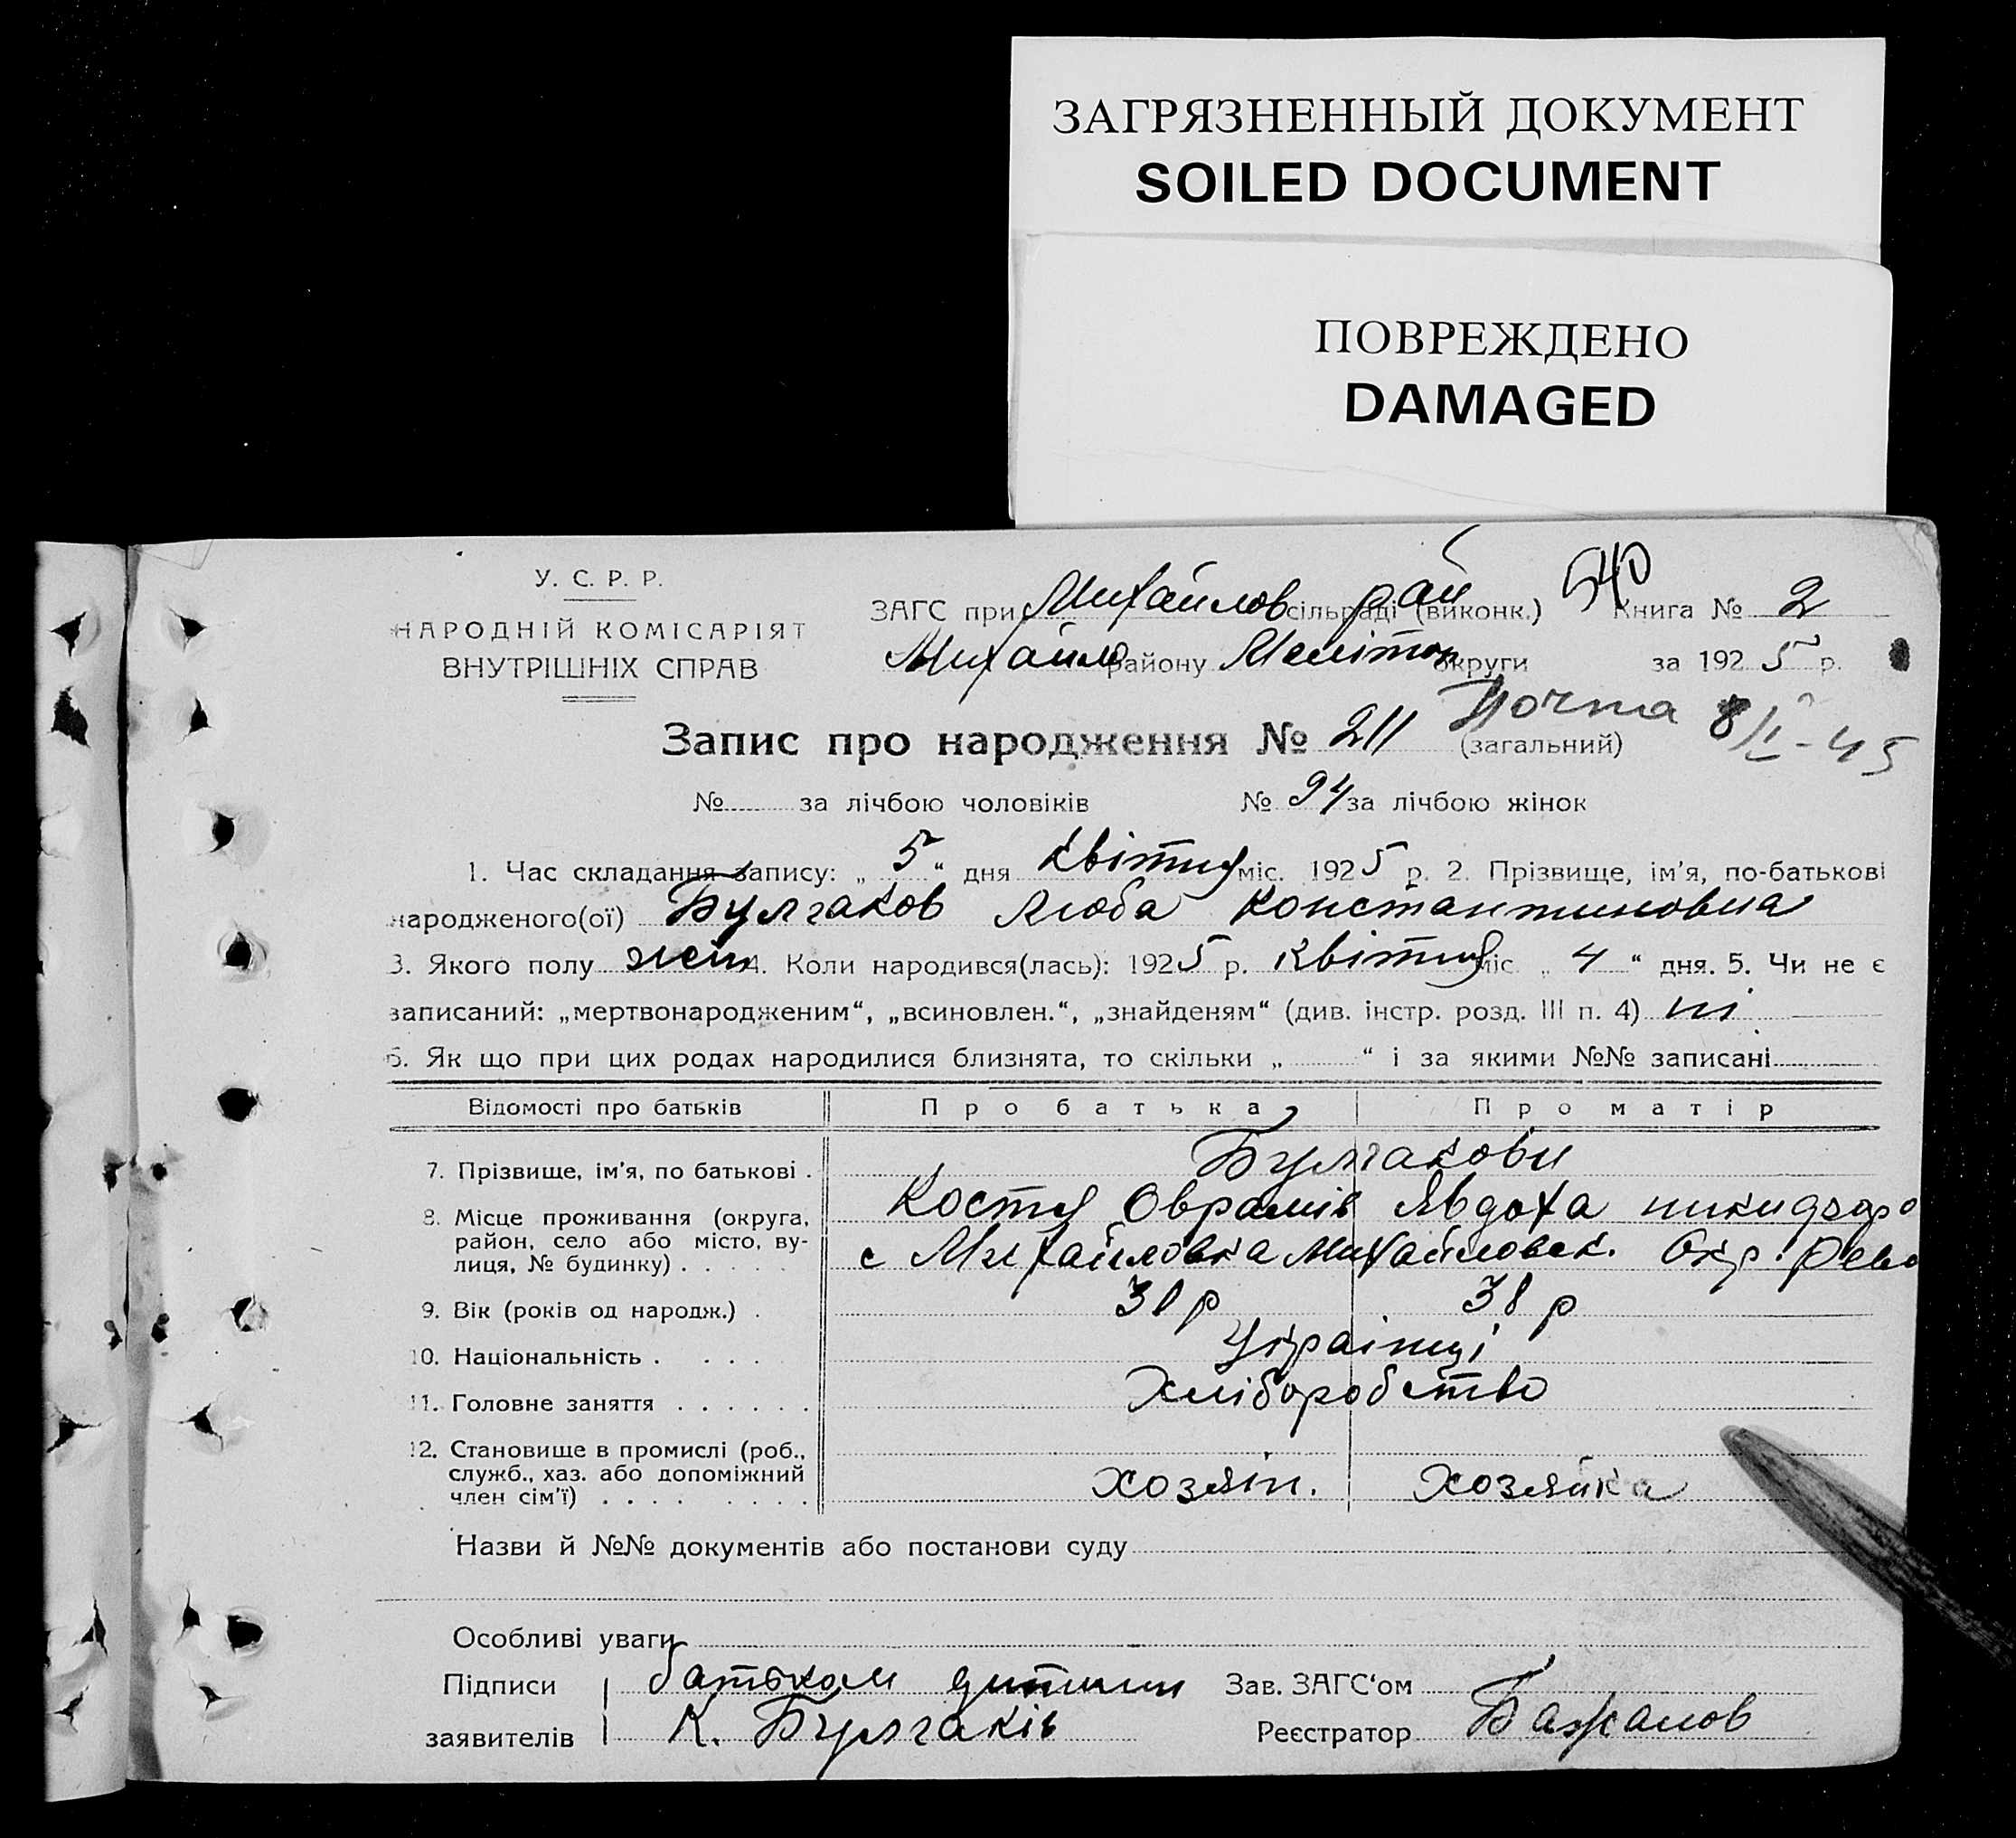 ЗАГРЯЗНЕННЫЙ ДОКУМЕНТ
SOILED DOCUMENT
ПОВРЕЖДЕНО
DAMAGED
У. С. Р. Р.
НАРОДНІЙ КОМІСАРІЯТ
ВНУТРІШНІХ СПРАВ
540
ЗАГС при Михайлов сільраді рай (виконк.) Книга № 2
Михайло району Меліток округи за 1925 р.
Почта 8/II-45
Запис про народження № 211 (загальний)
№ за лічбою чоловіків № 94 за лічбою жінок
1. Час складання запису: „ 5 “ дня Квітня міс. 1925 р. 2. Прізвище, ім'я, по-батькові
народженого(ої) Булгаков Люба Константиновна
3. Якого полу жін 4. Коли народився(лась): 1925 р. Квітня міс. „ 4 “ дня. 5. Чи не є
записаний: „мертвонародженим“, „всиновлен.“, „знайденям“ (див. інстр. розд. III п. 4) ні
6. Як що при цих родах народилися близнята, то скільки „ “ і за якими №№ записані
Відомості про батьків Про батька Про матір
7. Прізвище, ім'я, по батькові . Булгакови
Костя Оврамів Явдоха
8. Місце проживання (округа, район, село або місто, вулиця, № будинку) . . . . . с Михайловка Михайловск. Окр.
9. Вік (років од народж.) . 38 р 38 р
10. Національність . . . . Українці
11. Головне заняття . . . . . . Хліборобство
12. Становище в промислі (роб., служб., хаз. або допоміжний член сім'ї) . . . . . . . . хозяін. хозяйка
Назви й №№ документів або постанови суду
Особливі уваги
Підписи батьком дитини Зав. ЗАГС'ом
заявителів К. Булгаків Реєстратор Бажанов